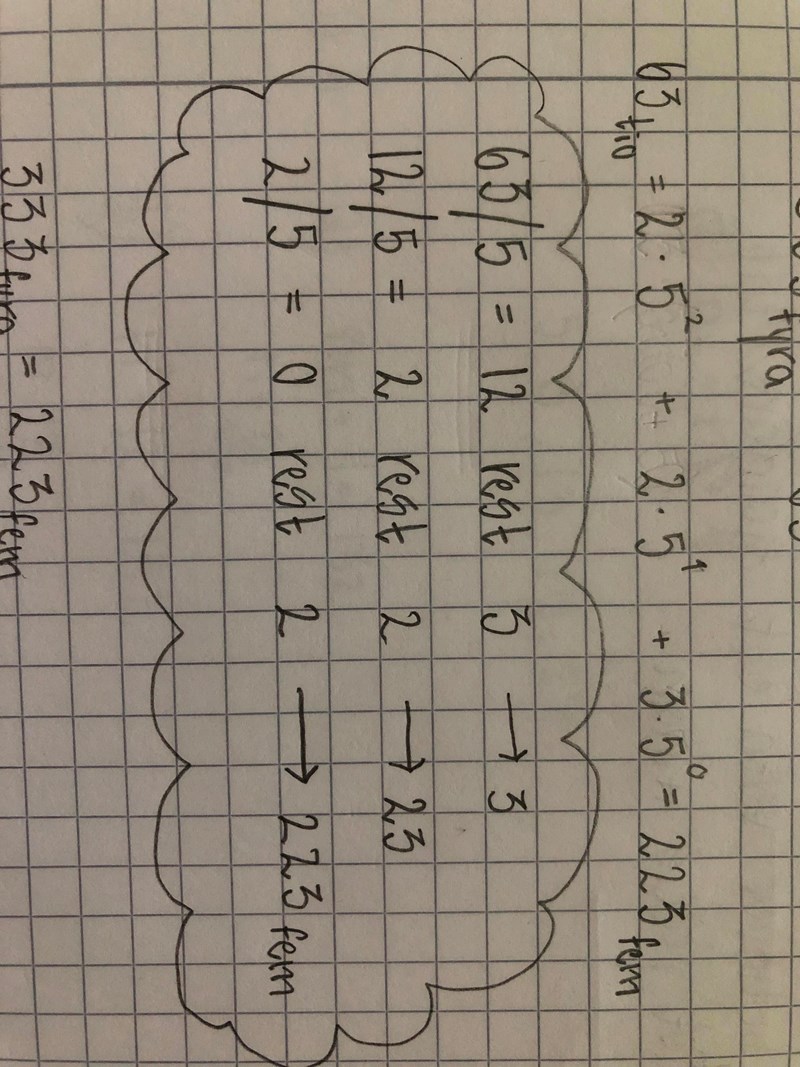 tyra
63tio = 2·5² + 2·5¹ + 3·5⁰ = 223fem
63/5 = 12 rest 3 → 3
12/5 = 2 rest 2 → 23
2/5 = 0 rest 2 → 223fem
333fyra = 223fem